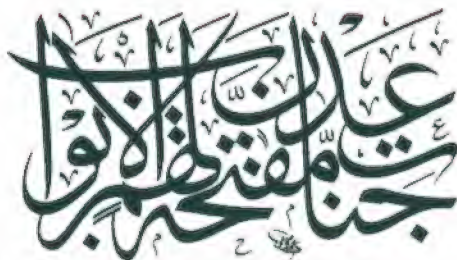 جَنَّاتِ عَدْنٍ مُّفَتَّحَةً لَّهُمُ الْأَبْوَابُ